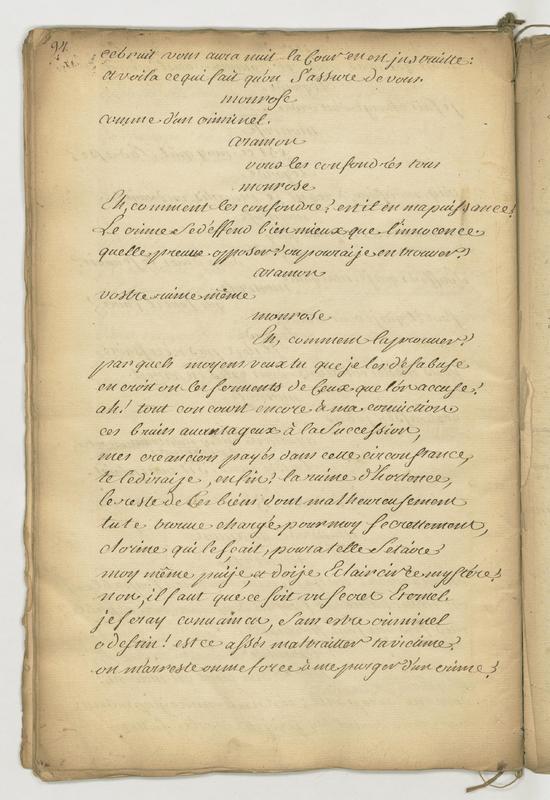 94.
ce bruit vous aura nuit la Cour en en instruitte:
et voila ce qui fait qu'on s'assure de vous.
monrose
comme d'un criminel.
aramon
vous les confondrés tous
monrose
Eh, comment les confondre? est il en ma puissance!
Le crime se déffend bien mieux que l'innocence
quelle preuve opposer? ou pouraije en trouver?
aramon
vostre ruine même
monrose
Eh, comment la prouver?
par quels moyens veux tu que je les désabuse
en croit on les serments de ceux que l'on accuse?
ah! tout concourt encore à ma conviction
ces bruits avantageux à la succession,
mes creanciers payés dans cette circonstance,
te le diraije, enfin? la ruine d'hortence,
le reste de ses biens dont malheureusement
tu te trouve chargé pour moy secrettement,
clorine qui le sçait, poura telle se taire?
moy même puije, et doije Eclaircir ce mystére?
non, il faut que ce soit un secret Eternel
je seray convaincu, sans estre criminel
o destin! est ce assés maltraitter ta victime?
on m'arreste on me force à me purger d'un crime?